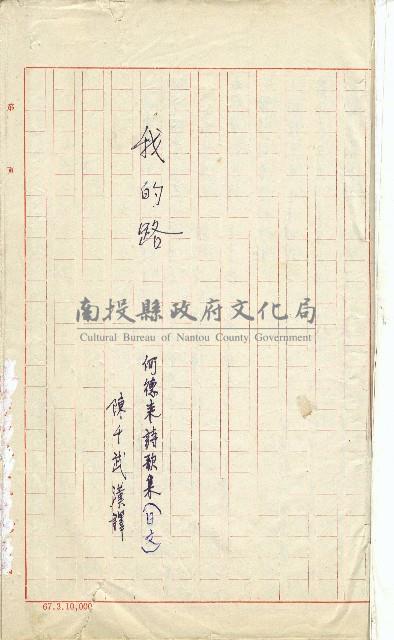 我的路
何德来詩歌集(日文)
陳千武漢譯
南投縣政府文化局
Cultural Bureau of Nantou County Government
第
頁
67.3.10,000